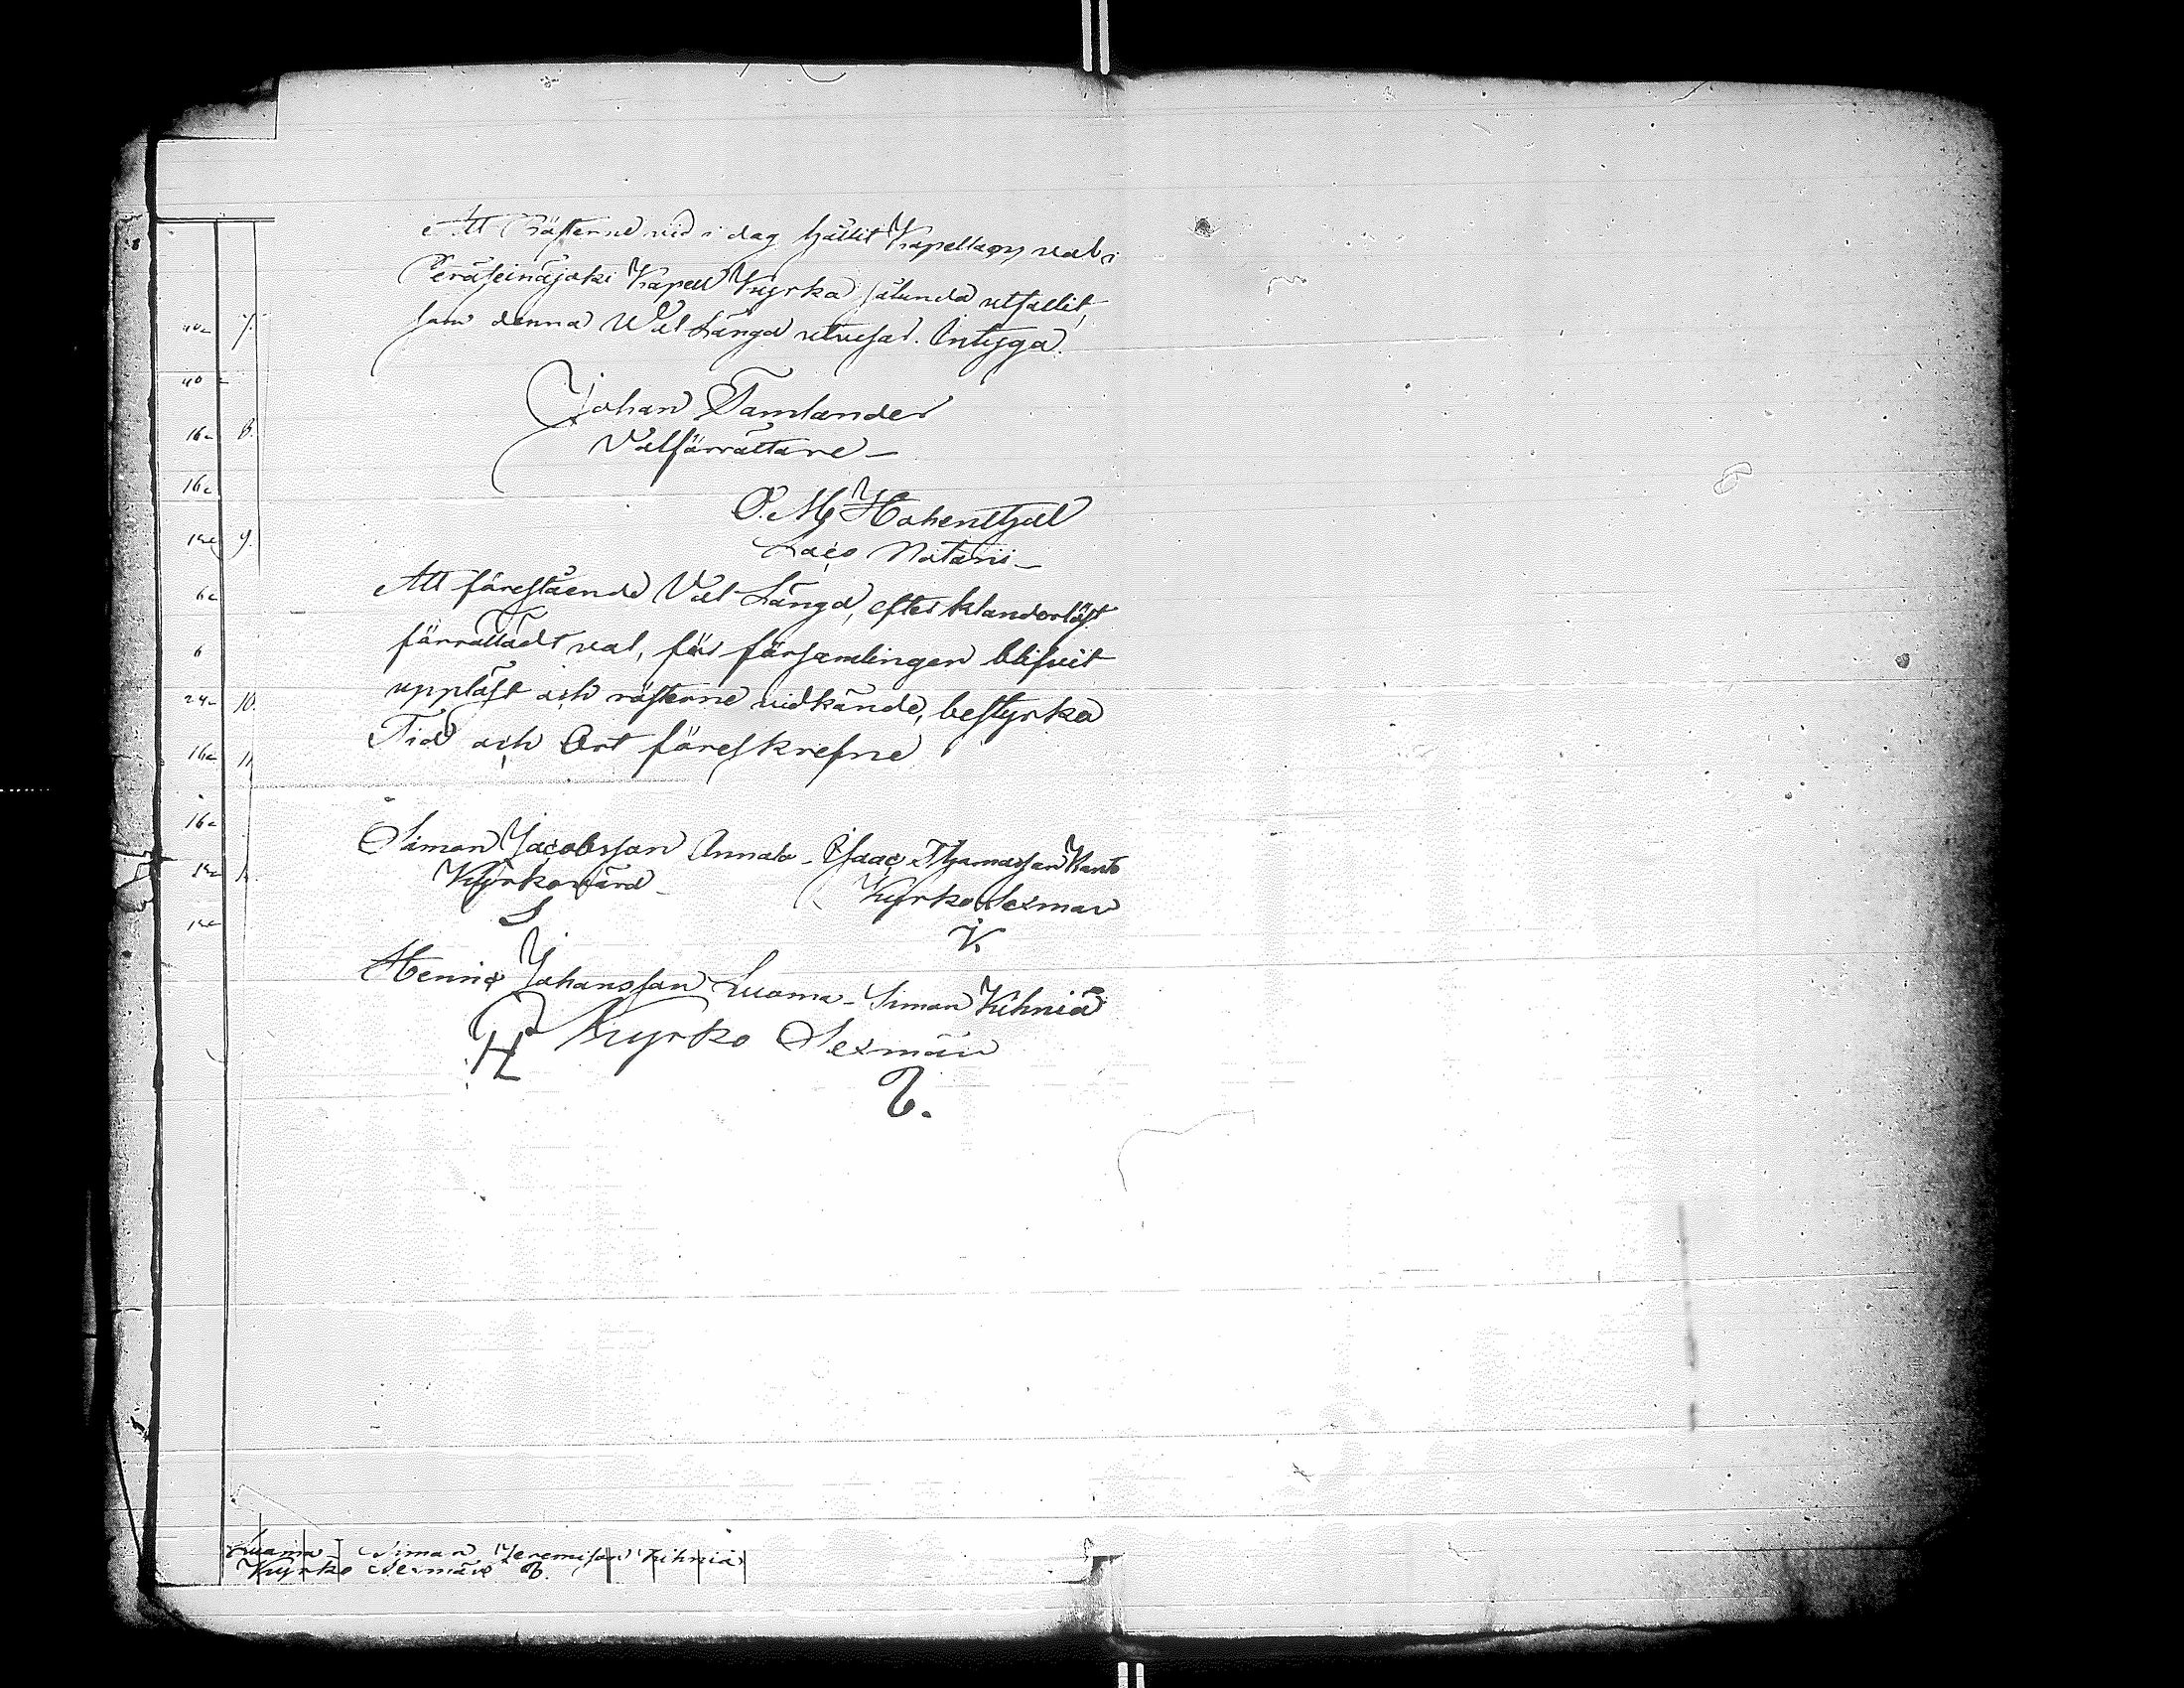 Att Rösterne vid i dag hållit Kapellans val i
Peräseinäjoki Kapell Kyrka sålunda utfallit,
som denna Val Längd utvisar. Intyga.
Johan Tamlander
Valförrättare
P. M. Hohenthal
Loco Notarii
Att förestående Val Längd, efter klanderlöst
förrättadt val, för församlingen blifvit
uppläst och rösterne vidkände, bestyrka
Tid och Ort föreskrefne
Simon Jacobsson Annala Isaac Thomasson Kanto
Kyrkovärd Kyrko Sexman
S K
Henric Johansson Luoma Simon Kihniä
Kyrko Sexmän
40 7.
40
16 8.
16
12 9.
6
6
24 10.
16 11.
16
12
12
Luoma Simon Jeremison Kihniä
Kyrko Sexmän